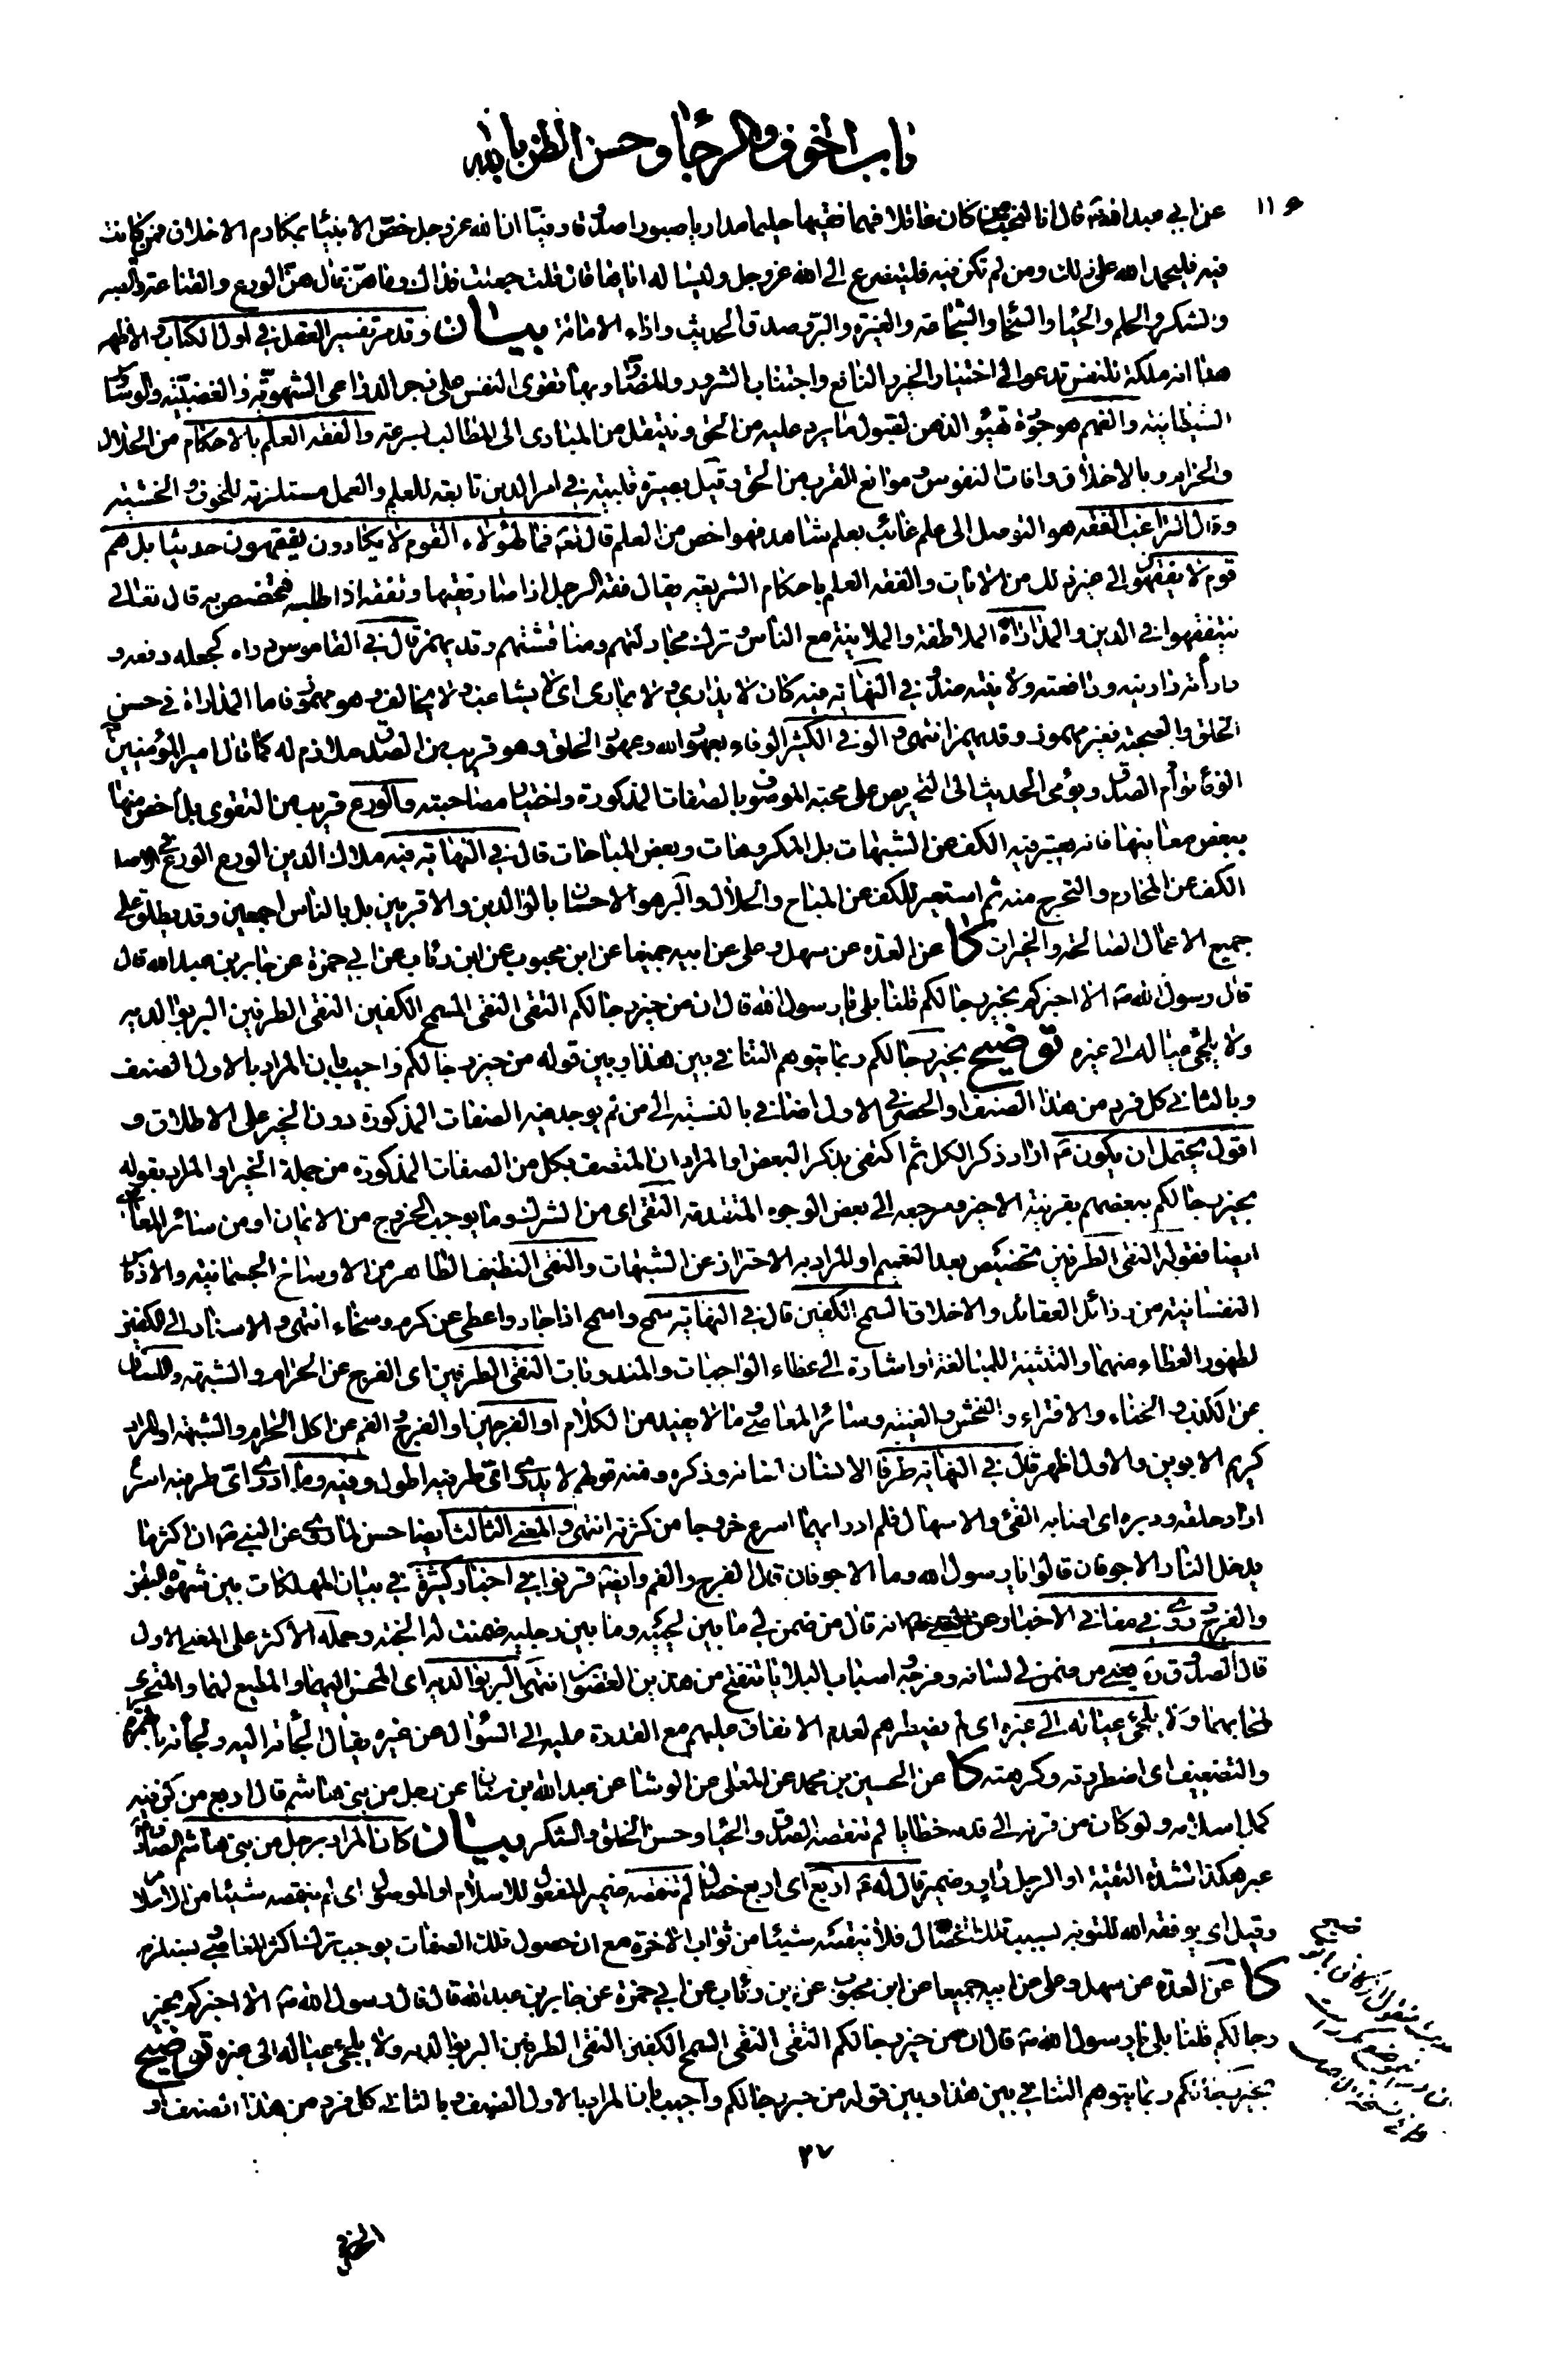 باب الخوف والرجاء وحسن الظن بالله
عن ابي عبد الله قال انا لنحب من كان عاقلا فهما فقيها حليما مداريا صبورا صدوقا وفيا ان الله عز وجل خص الانبياء بمكارم الاخلاق فمن كانت
فيه فليحمد الله على ذلك ومن لم تكن فيه فليتضرع الى الله عز وجل وليسأله اياها قال قلت جعلت فداك وما هن قال هن الورع والقناعة والصبر
والشكر والحلم والحياء والسخاء والشجاعة والغيرة والبر وصدق الحديث واداء الامانة بيان وقد مر تفسير العقل في اول الكتاب والاظهر
هنا انه ملكة للنفس تدعو الى اختيار الخير والنافع واجتناب الشرور والمضار وبها تقوى النفس على زجر الدواعي الشهوية والغضبية والوساوس
الشيطانية والفهم هو جودة تهيؤ الذهن لقبول ما يرد عليه من الحق وينتقل من المبادي الى المطالب بسرعة والفقه العلم بالاحكام من الحلال
والحرام وبالاخلاق وافات النفوس وموانع القرب من الحق وقيل بصيرة قلبية في امر الدين تابعة للعلم والعمل مستلزمة للخوف والخشية
وقال الراغب الفقه هو التوصل الى علم غائب بعلم شاهد فهو اخص من العلم قال تعم فما لهؤلاء القوم لا يكادون يفقهون حديثا بل هم
قوم لا يفقهون الى غير ذلك من الايات والفقه العلم باحكام الشريعة يقال فقه الرجل اذا صار فقيها وتفقه اذا طلبه فتخصص به قال تعالى
ليتفقهوا في الدين والمداراة الملاطفة والملاينة مع الناس وترك مجادلتهم ومناقشتهم وقد يهمز قال في القاموس دراه كجعله دفعه و
دارأته داريته ودافعته ولاينته ضد في النهاية فيه كان لا يداري ولا يماري اى لا يشاغب ولا يخالف وهو مهموز فاما المداراة في حسن
الخلق والصحبة فغير مهموز وقد يهمز انتهى و الوفي الكثير الوفاء بعهود الله وعهود الخلق وهو قريب من الصدق ملازم له كما قال امير المؤمنين
الوفاء توأم الصدق ويومى الحديث الى التحريص على محبة الموصوف بالصفات المذكورة واختيار مصاحبته والورع قريب من التقوى بل اخص منها
ببعض معانيها فانه يعتبر فيه الكف عن الشبهات بل المكروهات وبعض المباحات قال في النهاية فيه ملاك الدين الورع الورع في الاصل
الكف عن المحارم والتحرج منه ثم استعير للكف عن المباح والحلال والبر هو الاحسان بالوالدين والاقربين بل بالناس اجمعين وقد يطلق على
جميع الاعمال الصالحة والخيرات كا عن العدة عن سهل وعلي عن ابيه جميعا عن ابن محبوب عن ابن رئاب عن ابي حمزة عن جابر بن عبد الله قال
قال رسول الله ص الا اخبركم بخير رجالكم قلنا بلى يا رسول الله قال ان من خير رجالكم التقى النقى السمح الكفين النقى الطرفين البر بوالديه
ولا يلجئ عياله الى غيره توضيح بخير رجالكم ربما يتوهم التنافي بين هذا وبين قوله من خير رجالكم واجيب بان المراد بالاول الصنف
وبالثاني كل فرد من هذا الصنف او الحصر في الاول اضافي بالنسبة الى من لم يوجد فيه الصفات المذكورة دون الخير على الاطلاق و
اقول يحتمل ان يكون ص اراد ذكر الكل ثم اكتفى بذكر البعض او المراد ان المتصف بكل من الصفات المذكورة من جملة الخير او المراد بقوله
بخير رجالكم ببعضهم بقرينة الاخير ومرجعه الى بعض الوجوه المتقدمة التقى اى من الشرك وما يوجب الخروج من الايمان او من سائر المعاصي
ايضا فقوله النقى الطرفين تخصيص بعد التعميم او المراد به الاحتراز عن الشبهات والنقى النظيف الطاهر من الاوساخ الجسمانية والادناس
النفسانية من رذائل العقائد والاخلاق السمح الكفين قال في النهاية سمح واسمح اذا جاد واعطى عن كرم وسخاء انتهى والاسناد الى الكفين
لظهور العطاء منهما والتثنية للمبالغة او اشارة الى عطاء الواجبات والمندوبات النقى الطرفين اى الفرج عن الحرام والشبهة واللسان
عن الكذب والخناء والافتراء والفحش والغيبة وسائر المعاصي وما لا يفيد من الكلام او الفرجين او الفرج والفم عن اكل الحرام والشبهة او المراد
كريم الابوين والاول اظهر قال في النهاية طرفا الانسان لسانه وذكره ومنه قولهم لا يدرى اى طرفيه اطول وفيه وما ادرى اى طرفيه اسرع
اراد حلقه ودبره اى اصابه القئ والاسهال فلم ادر ايهما اسرع خروجا من كثرته انتهى والمعنى الثالث ايضا حسن لما روى عن النبي ص ان اكثر ما
يدخل النار الاجوفان قالوا يا رسول الله وما الاجوفان قال الفرج والفم وايضا قرنوا في اخبار كثيرة في بيان المهلكات بين شهوة البطن
والفرج وروى في معاني الاخبار عن النبي ص انه قال من ضمن لي ما بين لحييه وما بين رجليه ضمنت له الجنة وحمله الاكثر على المعنى الاول
قال الصدوق ره يعني من ضمن لي لسانه وفرجه اسباب البلايا تنفتح من هذين العضوين انتهى البر بوالديه اى المحسن اليهما والمطيع لهما والمتحري
لمحابهما ولا يلجئ عياله الى غيره اى لم يضطرهم لعدم الانفاق عليهم مع القدرة عليه الى السؤال عن غيره يقال الجأته اليه ولجأته بالهمزة
والتضعيف اى اضطررته وكرهته كا عن الحسين بن محمد عن المعلى عن الوشا عن عبد الله بن سنان عن رجل من بني هاشم قال اربع من كن فيه
كمل اسلامه ولو كان من قرنه الى قدمه خطايا لم تنقصه الصدق والحياء وحسن الخلق والشكر بيان كان المراد برجل من بني هاشم الصادق
عبر هكذا لشدة التقية او الرجل راو وضمير قال له ع اربع اى اربع خصال لم تنقصه ضمير المفعول للاسلام او الموصول اى لم ينقصه شيئا من الاسلام
وقيل اى يوفقه الله للتوبة بسبب تلك الخصال فلا ينقصه شيئا من ثواب الاخرة مع ان حصول تلك الصفات يوجب ترك اكثر المعاصي ويستلزمه
كا عن العدة عن سهل وعلى عن ابيه جميعا عن ابن محبوب عن بن رئاب عن ابي حمزة عن جابر بن عبد الله قال قال رسول الله ص الا اخبركم بخير
رجالكم قلنا بلى يا رسول الله ص قال ان من خير رجالكم التقى النقى السمح الكفين النقى الطرفين البر بوالديه ولا يلجئ عياله الى غيره توضيح
بخير رجالكم ربما يتوهم التنافي بين هذا وبين قوله من خير رجالكم واجيب بان المراد بالاول الصنف وبالثاني كل فرد من هذا الصنف او
٣٧
الحصر